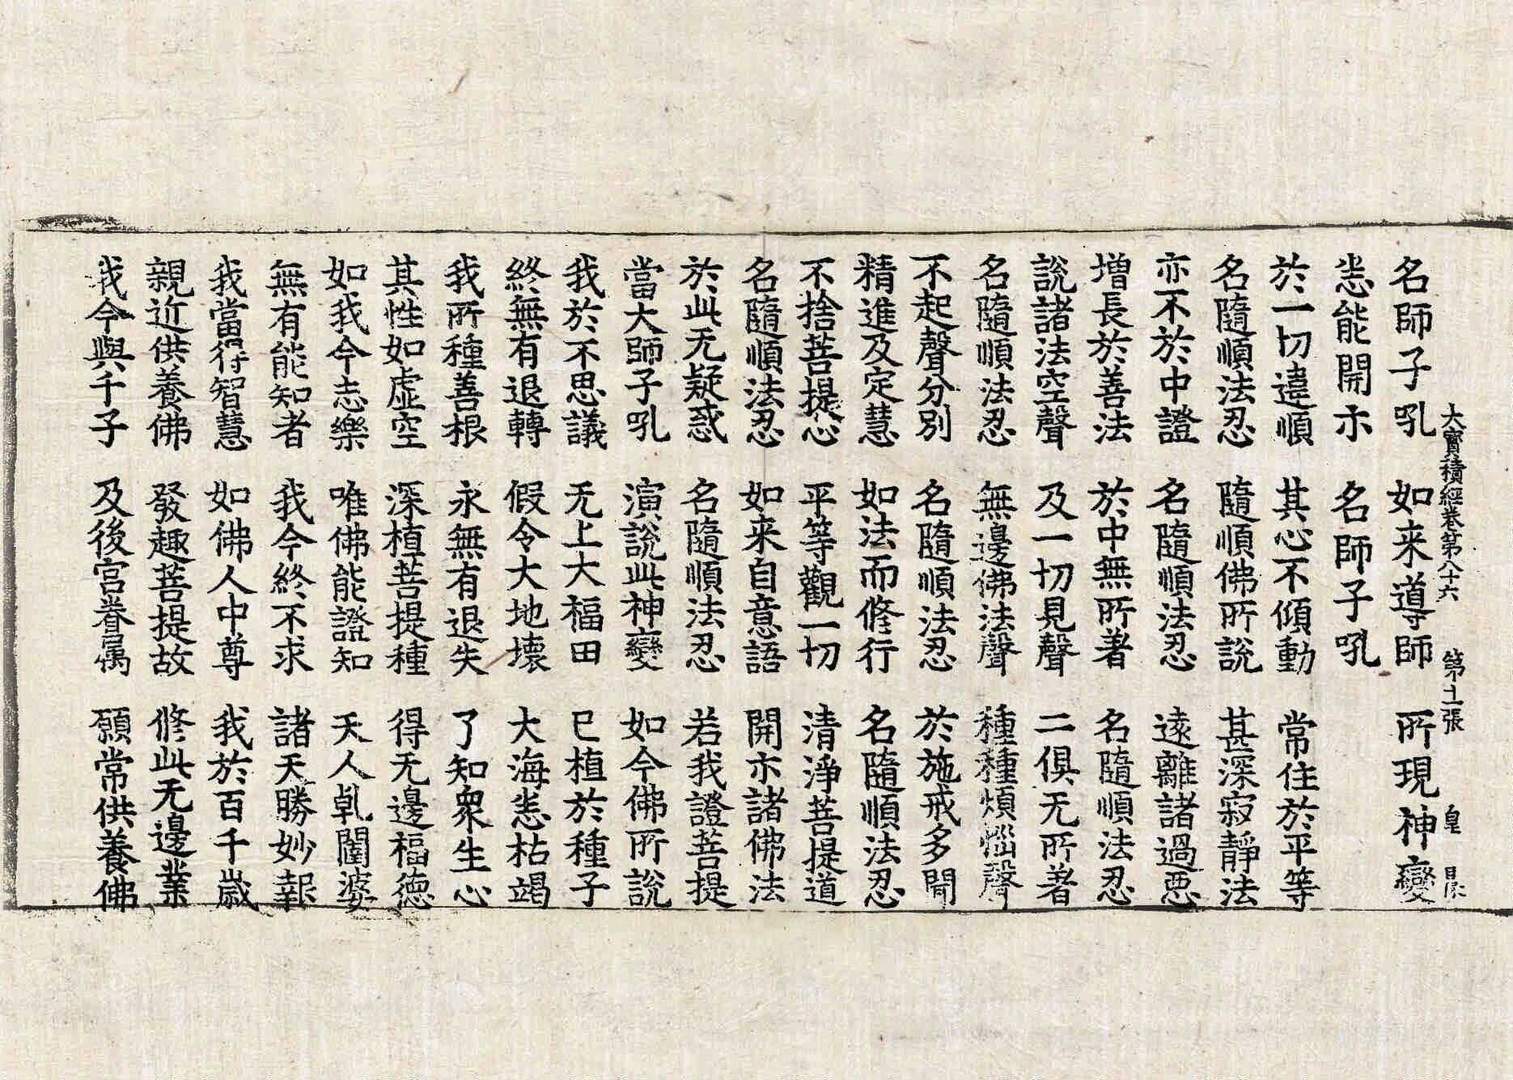 大寳積經卷第八十六 第十二張 皇
名師子吼 如来導師 所現神變
悉能開示 名師子吼
於一切違順 其心不傾動 常住於平等
名隨順法忍 隨順佛所說 甚深寂靜法
亦不於中證 名隨順法忍 遠離諸過惡
增長於善法 於中無所著 名隨順法忍
說諸法空聲 及一切見聲 二俱无所著
名隨順法忍 無邊佛法聲 種種煩惱聲
不起聲分別 名隨順法忍 於施戒多聞
精進及定慧 如法而修行 名隨順法忍
不捨菩提心 平等觀一切 清淨菩提道
名隨順法忍 如来自意語 開示諸佛法
於此无疑惑 名隨順法忍 若我證菩提
當大師子吼 演說此神變 如今佛所說
我於不思議 无上大福田 已植於種子
終無有退轉 假令大地壞 大海悉枯竭
我所種善根 永無有退失 了知衆生心
其性如虛空 深植菩提種 得无邊福德
如我今志樂 唯佛能證知 天人乹闥婆
無有能知者 我今終不求 諸天勝妙報
我當得智慧 如佛人中尊 我於百千歲
親近供養佛 發趣菩提故 修此无邊業
我今與千子 及後宮眷属 願常供養佛